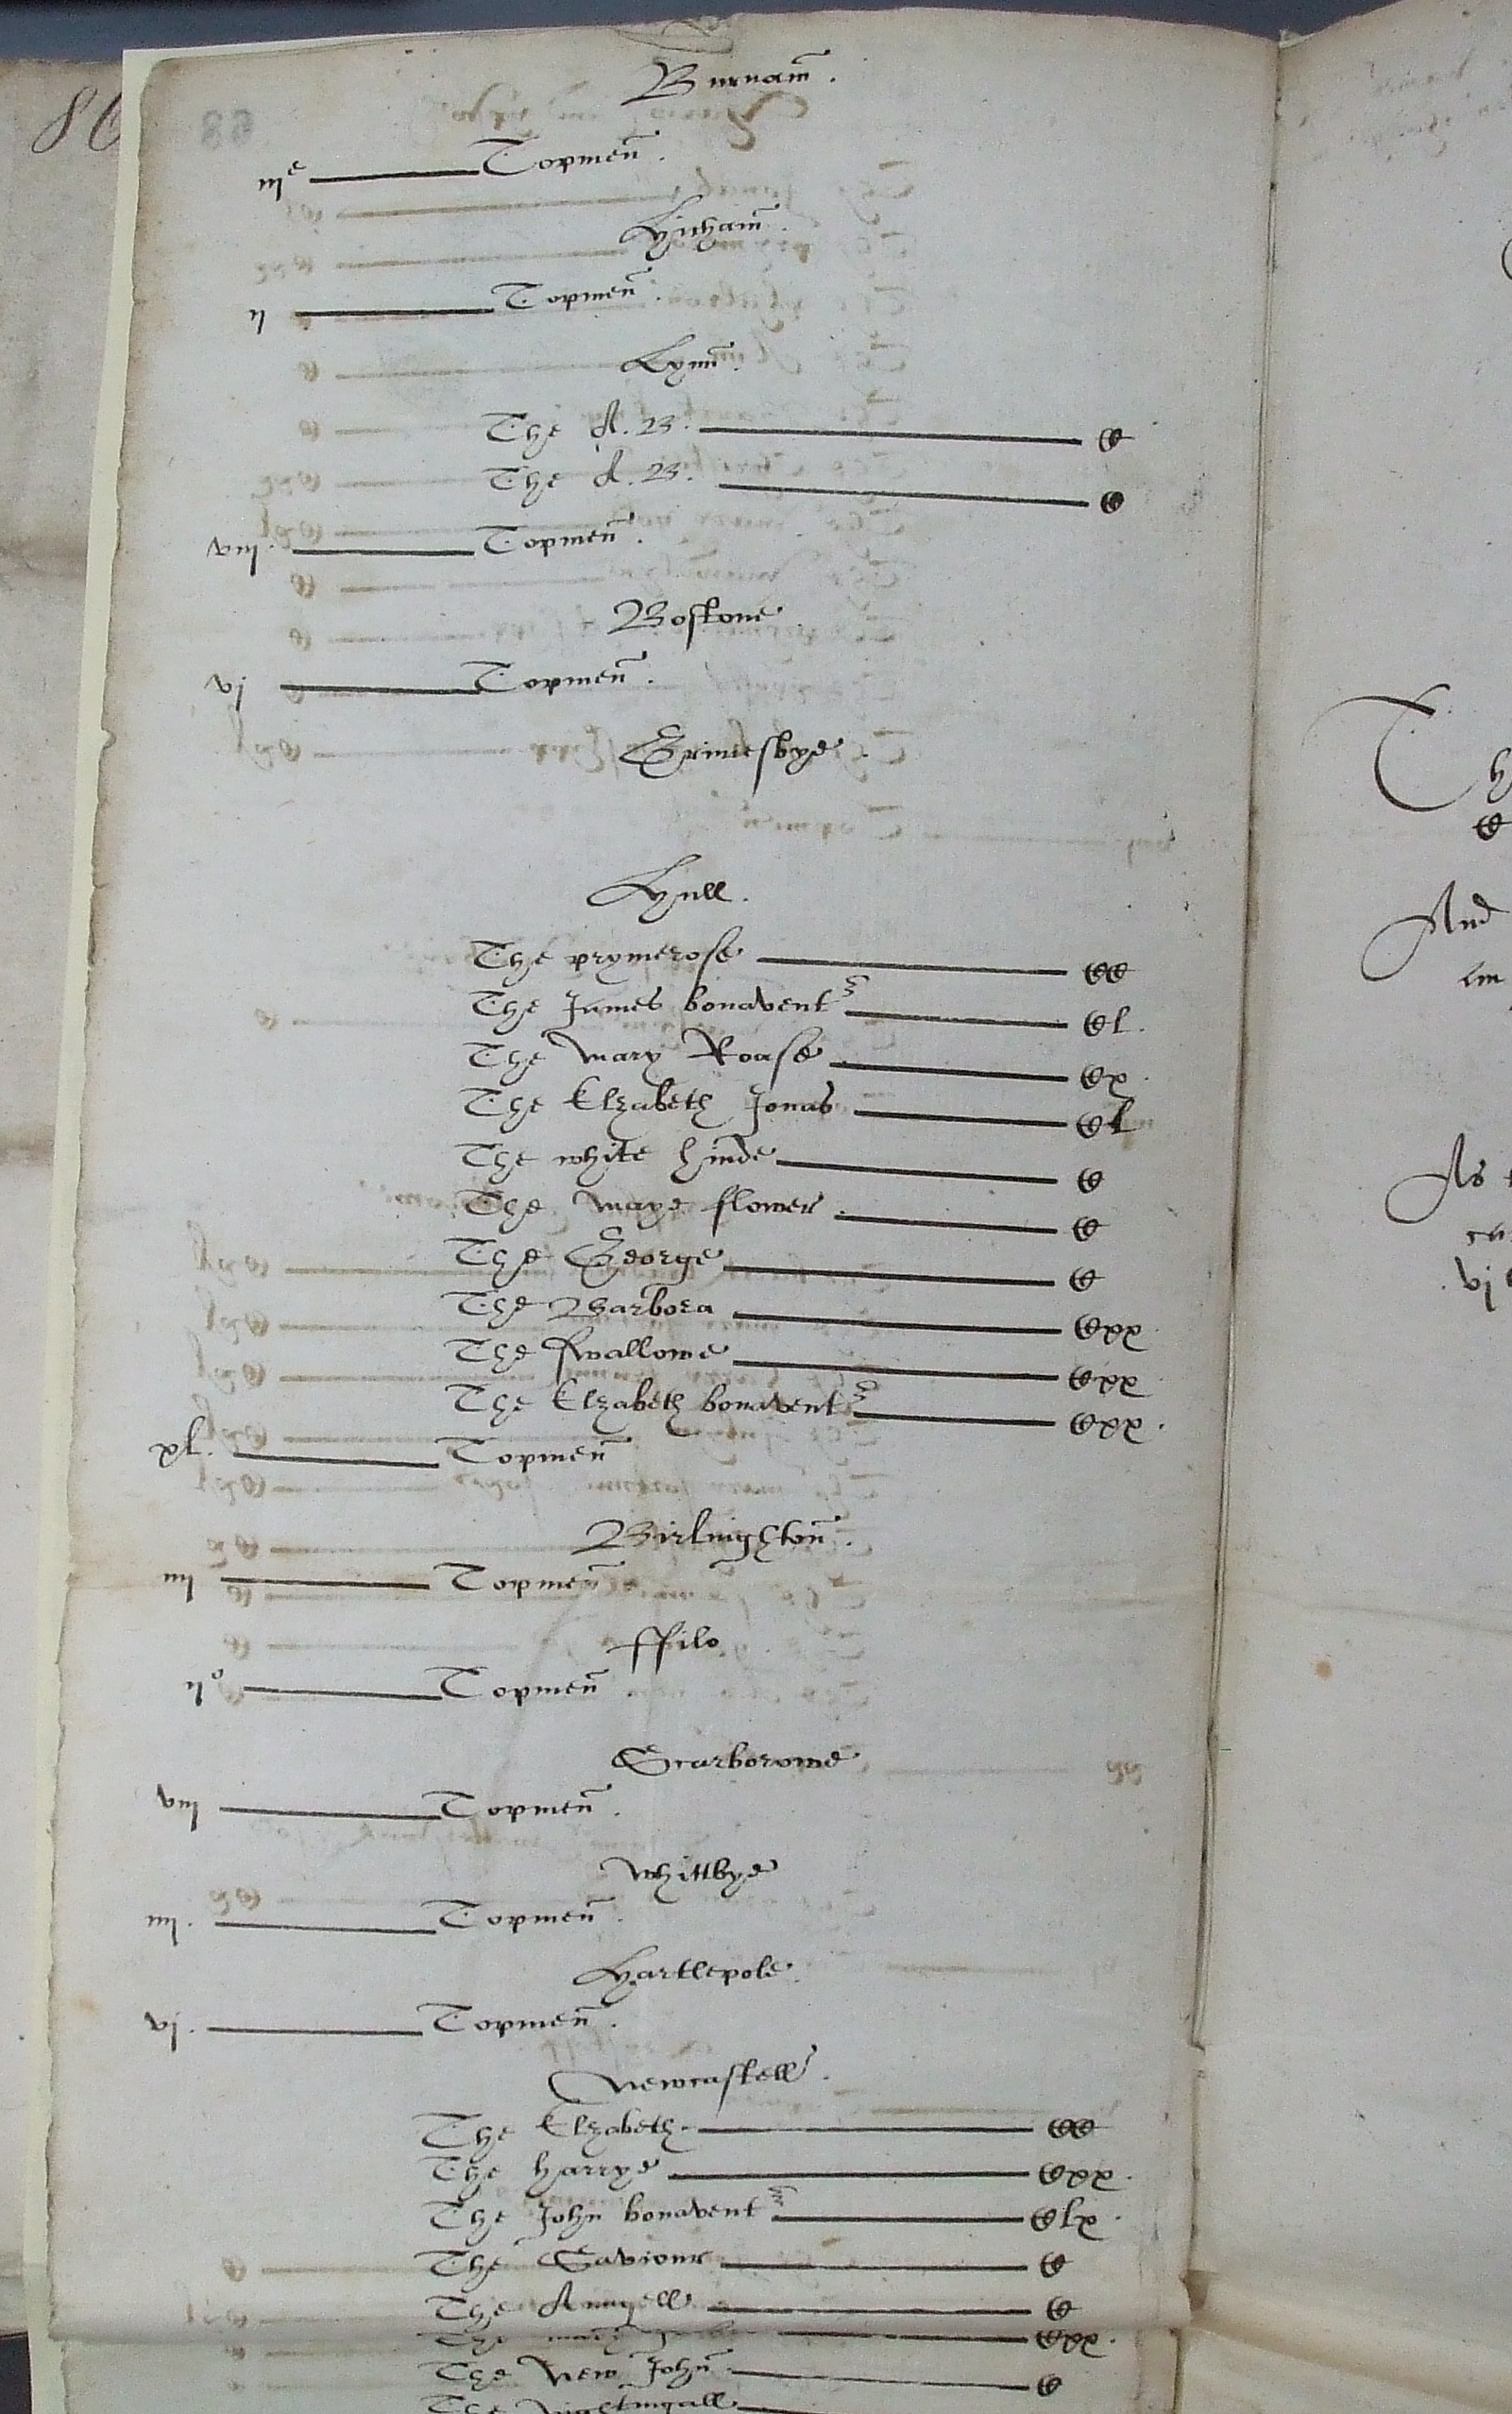 86
Burnam̃.
iij^e Topmeñ.
Hicham̃.
ij Topmeñ.
Lynñ.
The A. B. C
The A. B. C
viij. Topmeñ.
Bostone.
vj Topmeñ.
Grimesbye.
Hull.
The prymerose CC
The James bonavent^r Cl.
The Mary Roase Cx.
The Elzabeth Jonas Cl
The white hinde C
The Maye flower C
The George C
The Barbora Cxx
The Swallowe Cxx
The Elzabeth bonavent^r Cxx.
xl. Topmeñ
Birlinghtoñ.
iiij Topmeñ
ffilo
ij^o Topmeñ
Scarborowe
viij Topmeñ.
Whittbye
iiij. Topmeñ.
Hartlepole.
vj. Topmeñ.
Newcastell.
The Elzabeth CC
The Harrye Cxx.
The John bonavent^r Clx.
The Saviour C
The Anngell C
The Mary Cxx.
The New Johñ C
The Nightingall
Th
C
And
im
As
vj